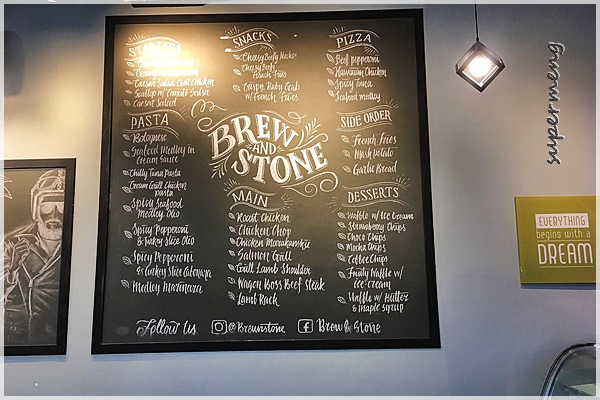 STARTERS
Caesar Salad Grill Chicken
Scallop w/ Tomato Salsa
Caesar Salad
SNACKS
Cheesy Beefy Nachos
Cheesy Beefy
French Fries
Crispy Baby Crab
w/ French Fries
PIZZA
Beef pepperoni
Hawaiian Chicken
Spicy Tuna
Seafood medley
PASTA
Bolognese
Seafood Medley in
Cream Sauce
Chilly Tuna Pasta
Cream Grill Chicken
pasta
Spicy Seafood
Medley Olio
Spicy Pepperoni
& Turkey Slice Olio
Spicy Pepperoni
& Turkey Slice
Medley Marinara
BREW
AND
STONE
SIDE ORDER
French Fries
Mash potato
Garlic Bread
MAIN
Roast Chicken
Chicken Chop
Chicken
Salmon Grill
Grill Lamb Shoulder
Wagon Boss Beef Steak
Lamb Rack
DESSERTS
Waffle w/ Ice Cream
Strawberry Chips
Choco Chips
Mocha Chips
Coffee Chips
Fruity Waffle w/
Ice-cream
Waffle w/ Butter
& Maple Syrup
Follow Us @Brewnstone Brew & Stone
EVERYTHING
begins with a
DREAM
supermeng